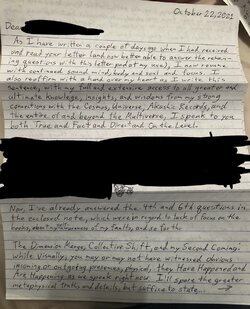 October 22, 2021
Dear
As I have written a couple of days ago when I had received
and read your letter (and now better able to answer the remain-
ing questions with this letter pad of my use), I now resume
with continued sound mind, body and soul and focus. I
also reaffirm with hand over my heart as I write this
sentence, with my full and extensive access to all greater and
ultimate knowledge, insights, and wisdoms from my strong
connections with the Cosmos, Universe, Akashic Records, and
the entire of and beyond the Multiverse, I speak to you
both True and Fact and Direct and On the Level.
Now, I've already answered the 4th and 6th questions in
the enclosed note, which were in regard to lack of focus on the
books, about my of my faults, and so forth.
The Dimension Merge, Collective Shift, and my Second Coming:
While Visually, you may or may not have witnessed obvious
incoming or outgoing presences, physical, they Have Happened and
Are Happening as we speak right now. I'll spare the greater
metaphysical truths and details, but suffice to state...